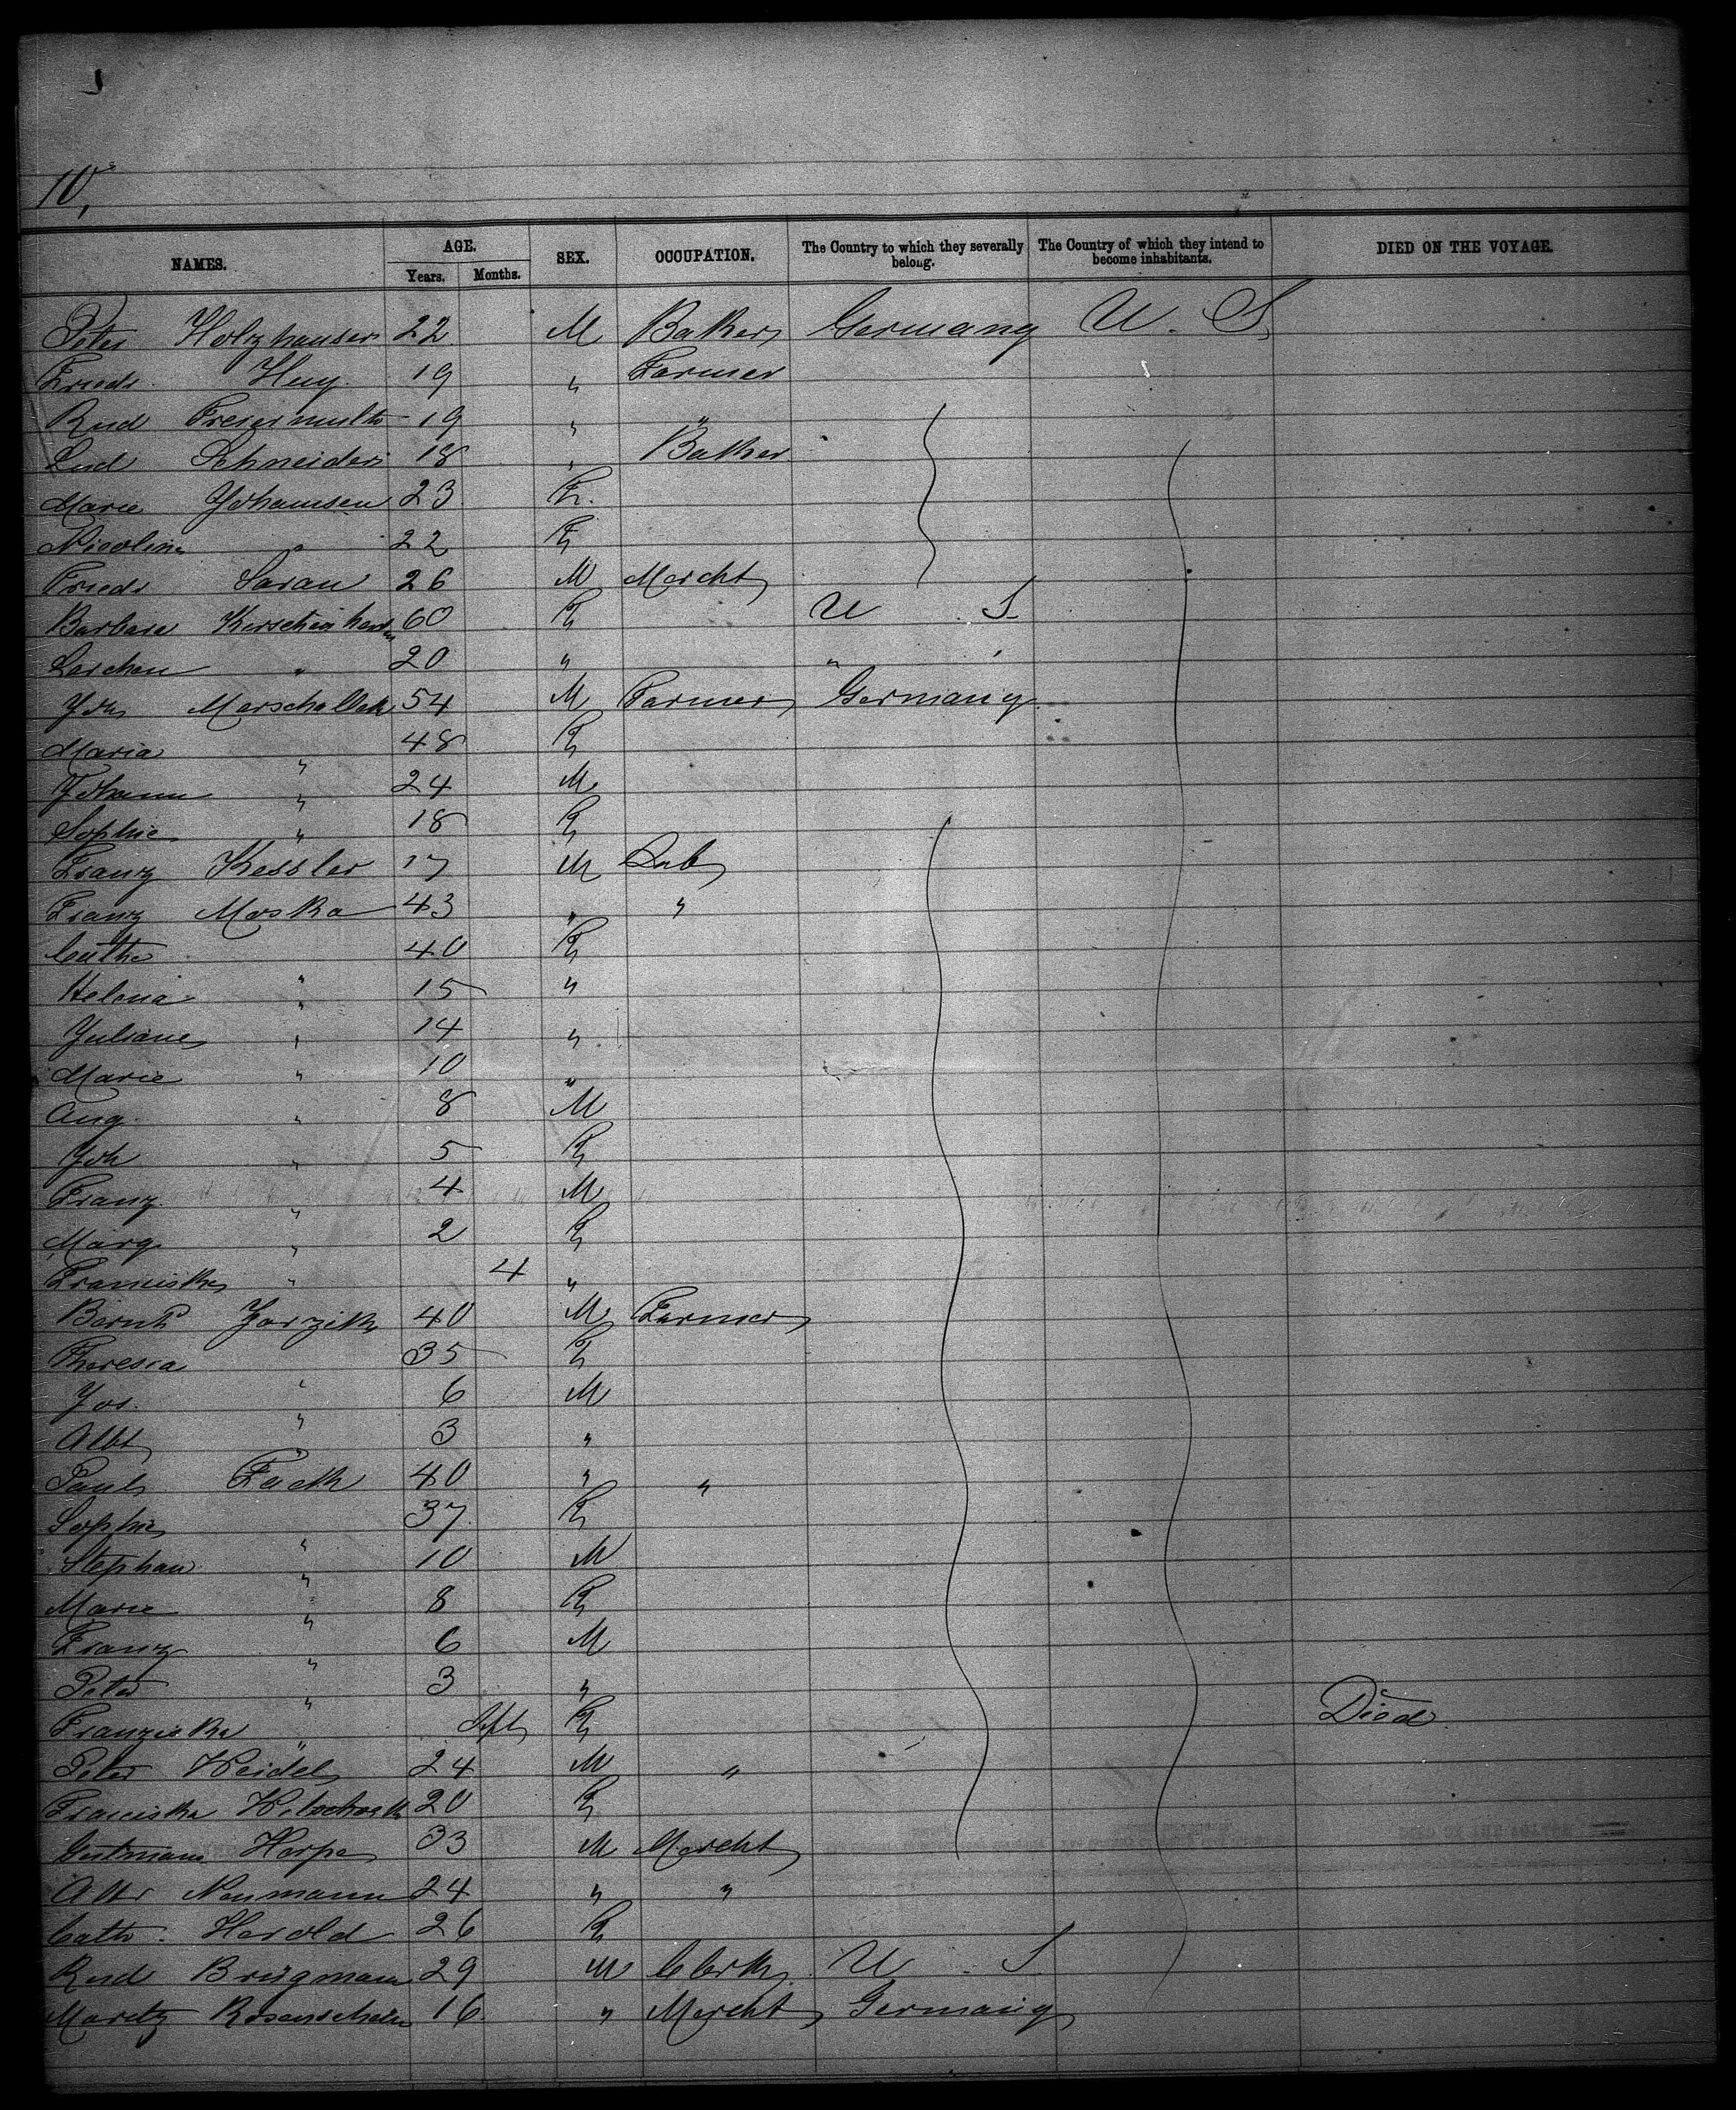 10,
NAMES. AGE. Years. Months. SEX. OCCUPATION. The Country to which they severally belong. The Country of which they intend to become inhabitants. DIED ON THE VOYAGE.
Peter Holzhauser 22 M Baker Germany U. S.
Friedr. Huy 19 " Farmer
Rud 19 " "
Lud Schneider 18 " Baker
Marie Johannsen 23 F.
Nicoline " 22 F
Friedr Saran 26 M Mercht
Barbara 60 F U S.
Lorchen " 20 " " "
Joh Marschallek 54 M Farmer Germany
Maria " 48 F
Johann " 24 M
Sophie " 18 F
Franz Kessler 17 M Lab
Franz Moska 43 " "
Cathe " 40 F
Helena " 15 "
Juliane " 14 "
Marie " 10 "
Aug. " 8 M
Joh " 5 F
Franz " 4 M
Marg " 2 F
Franciska " 4 "
Bernh Jarzik 40 M Farmer
Theresia " 35 F
Jos. " 6 M
Albt " 3 "
Paul Fack 40 " "
Sophie " 37 F
Stephan " 10 M
Marie " 8 F
Franz " 6 M
Peter " 3 "
Franziska " Inft F Died
Peter Weidel 24 M "
Franciska 20 F
Gutmann Horpe 33 M Mercht
Neumann 24 " "
Cath. Herold 26 F
Rud Brügmann 29 M Clerk U S
Moritz Rosenschein 16. " Mercht Germany